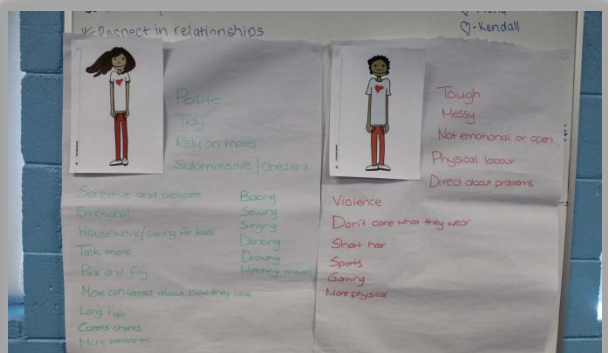 Respect in relationships
-Kendall
Polite
Tidy
Rely on males
Submissive/obedient
Sensitive and delicate
Emotional
Housewife/caring for kids
Talk more
Pink and frilly
More concerned about how they look
Long hair
Careers chores
More romantic
Baking
Sewing
Singing
Dancing
Drawing
Watching movies
Tough
Messy
Not emotional or open
Physical labour
Direct about problems
Violence
Don't care what they wear
Short hair
Sports
Gaming
More physical